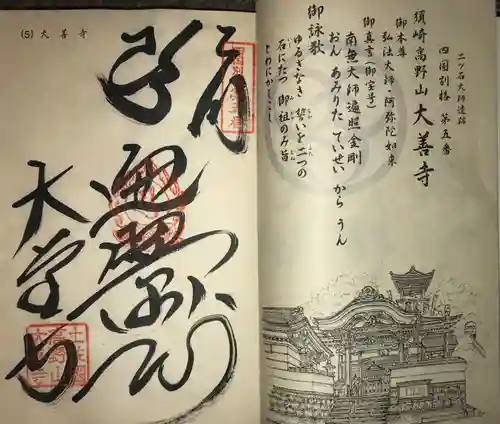 二ツ石大師遺跡
四国別格 第五番
須崎高野山 大善寺
御本尊
弘法大師・阿弥陀如来
御真言(御宝号)
南無大師遍照金剛
おん あみりた ていせい から うん
御詠歌
ゆるぎなき 誓いを二つの
石にたつ 御祖のみ旨
とわにかしこし
(5) 大善寺
奉拝
遍照殿
大善寺